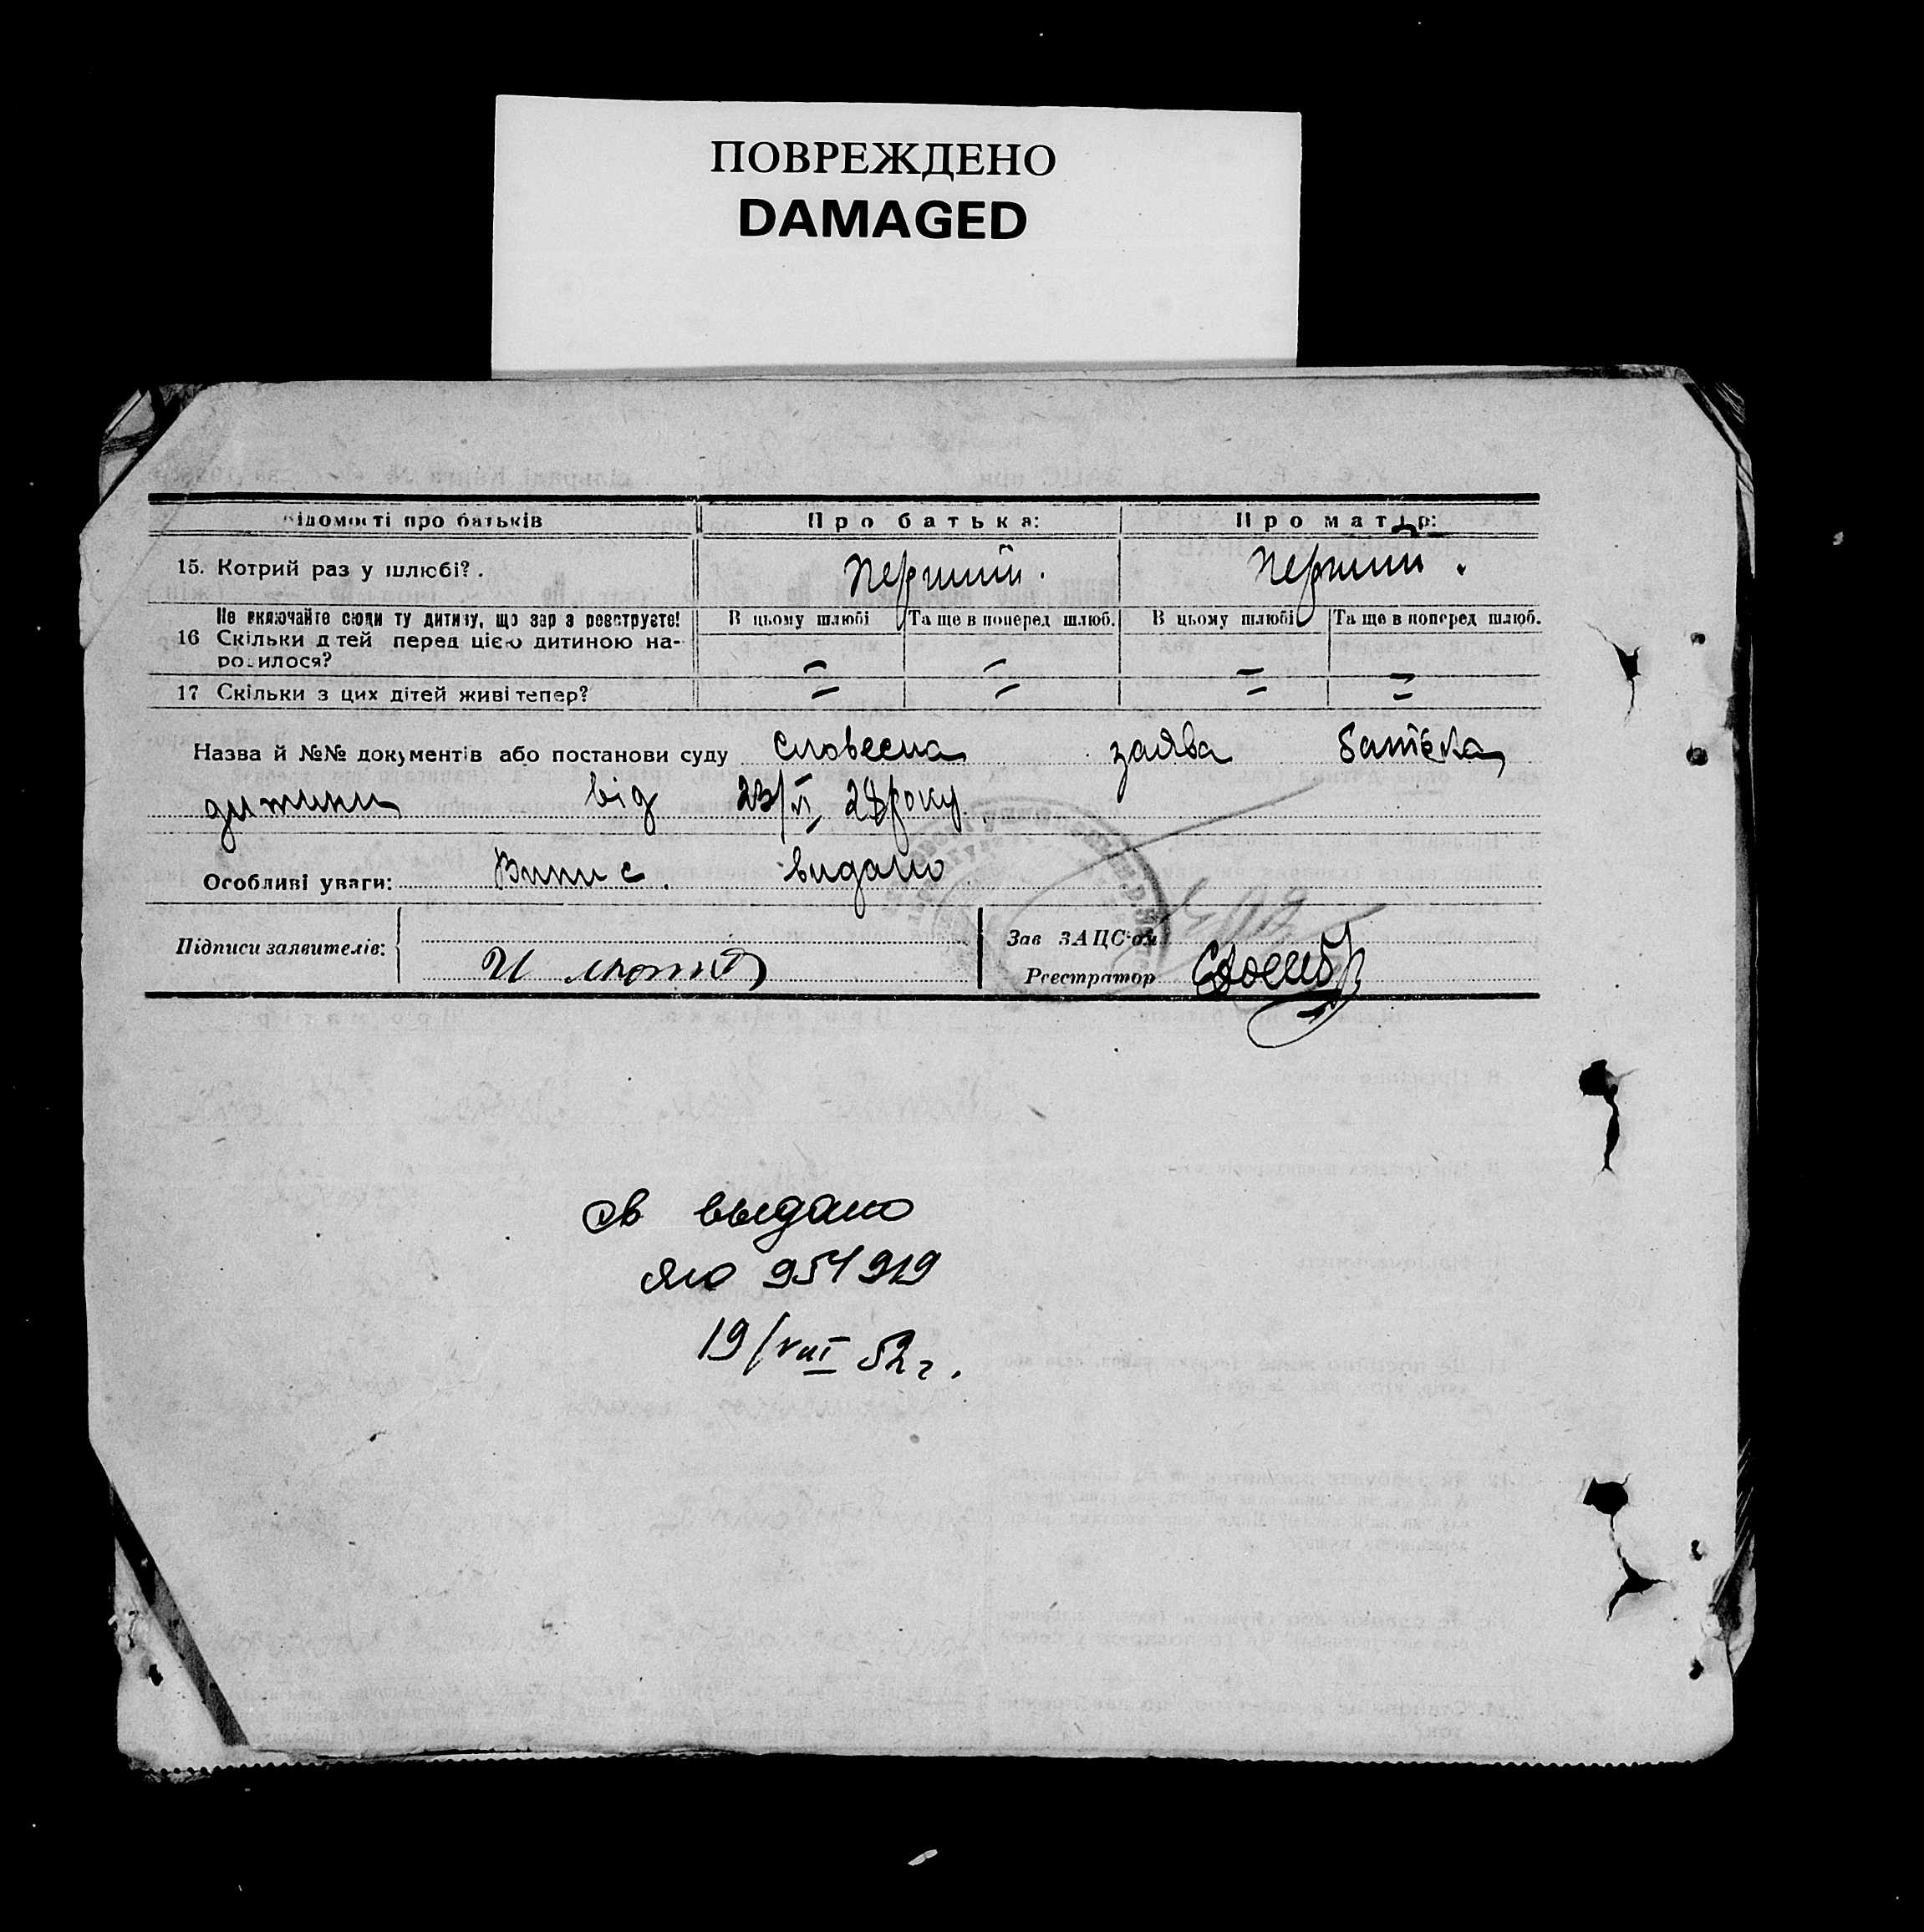 ПОВРЕЖДЕНО
DAMAGED
Відомості про батьків Про батька: Про матір:
15. Котрий раз у шлюбі?. Перший. Перший.
Не включайте сюди ту дитину, що зараз реєструєте! В цьому шлюбі Та ще в поперед шлюб. В цьому шлюбі Та ще в поперед шлюб.
16 Скільки дітей перед цією дитиною на-
родилося? = = = =
17 Скільки з цих дітей живі тепер?
Назва й №№ документів або постанови суду словесна заява батька
дитини від 23/VI 28 року
Особливі уваги: Випис. видано
Підписи заявителів: Зав ЗАЦС-ом
Реєстратор
св выдано
ЯЮ 954919
19/VIII 52 г.